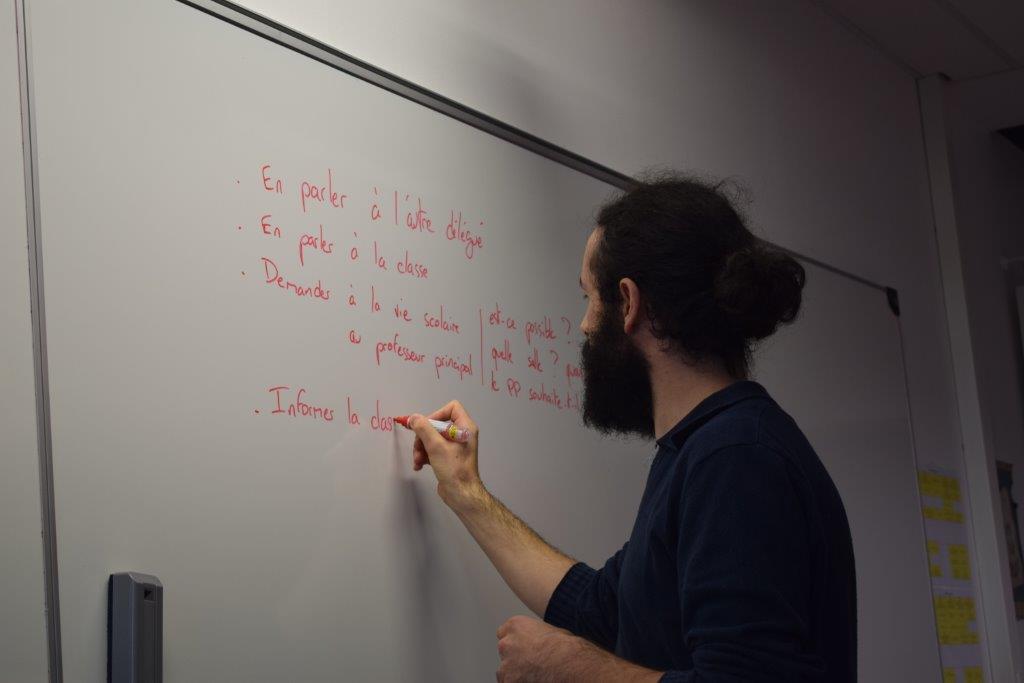 . En parler à l'autre délégué
. En parler à la classe
. Demander à la vie scolaire | est-ce possible ?
au professeur principal | quelle salle ?
le PP souhaite-t-il
. Informer la clas